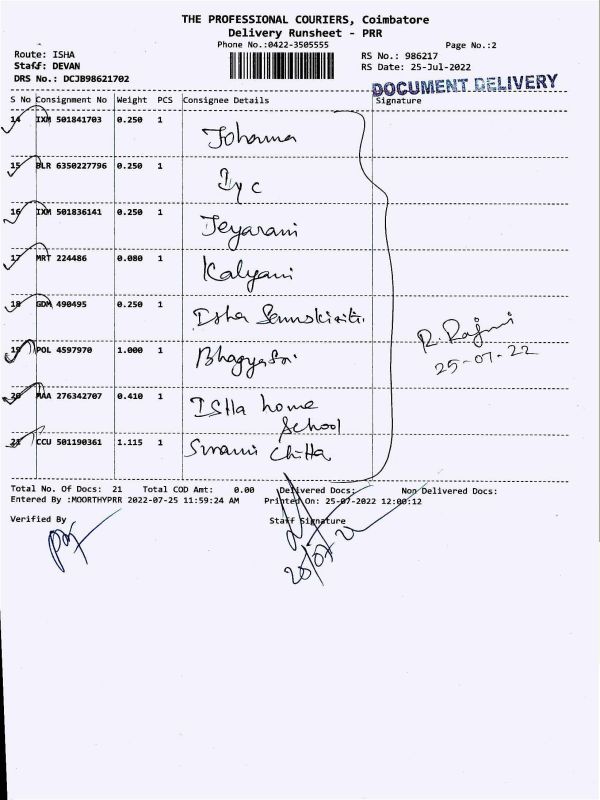 THE PROFESSIONAL COURIERS, Coimbatore
Delivery Runsheet - PRR
Phone No.:0422-3505555
Page No.:2
Route: ISHA
RS No.: 986217
Staff: DEVAN
RS Date: 25-Jul-2022
DRS No.: DCJB98621702
DOCUMENT DELIVERY
S No Consignment No Weight PCS Consignee Details Signature
14 IXM 501841703 0.250 1
15 BLR 6350227796 0.250 1 Iyc
16 IXM 501836141 0.250 1 Jeyarani
17 MRT 224486 0.080 1 Kalyani
18 GDM 490495 0.250 1 Isha
19 POL 4597970 1.000 1 Bhagyasri
R. Rajni
25-07-22
20 MAA 276342707 0.410 1 ISHa home
School
21 CCU 501190361 1.115 1 Swami Chitta
Total No. Of Docs: 21 Total COD Amt: 0.00 Delivered Docs: Non Delivered Docs:
Entered By :MOORTHYPRR 2022-07-25 11:59:24 AM Printed On: 25-07-2022 12:00:12
Verified By Staff Signature